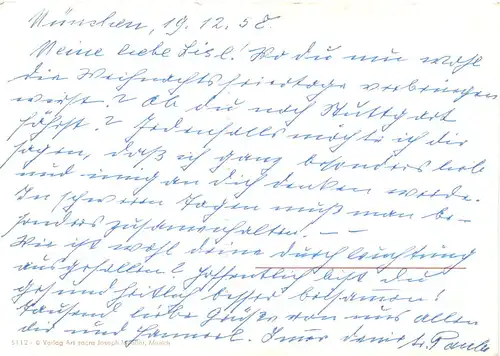 München, 19.12.58.
Meine liebe Lisl! Wo du nun wohl
die Weihnachtsfeiertage verbringen
wirst? Ob du nach Stuttgart
fährst? Jedenfalls möchte ich dir
sagen, daß ich ganz besonders lieb
und innig an dich denken werde.
In schweren Tagen muß man be-
sonders zusammenhalten. – –
Wie ist wohl deine Durchleuchtung
ausgefallen? Hoffentlich bist du
gesundheitlich beisammen!
Tausend liebe Grüße von uns allen
dir und Immer deine
5112 - © Verlag Ars sacra Joseph Müller, Munich